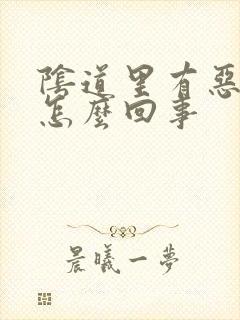 陰道里有惡
怎麼回事
晨曦一夢